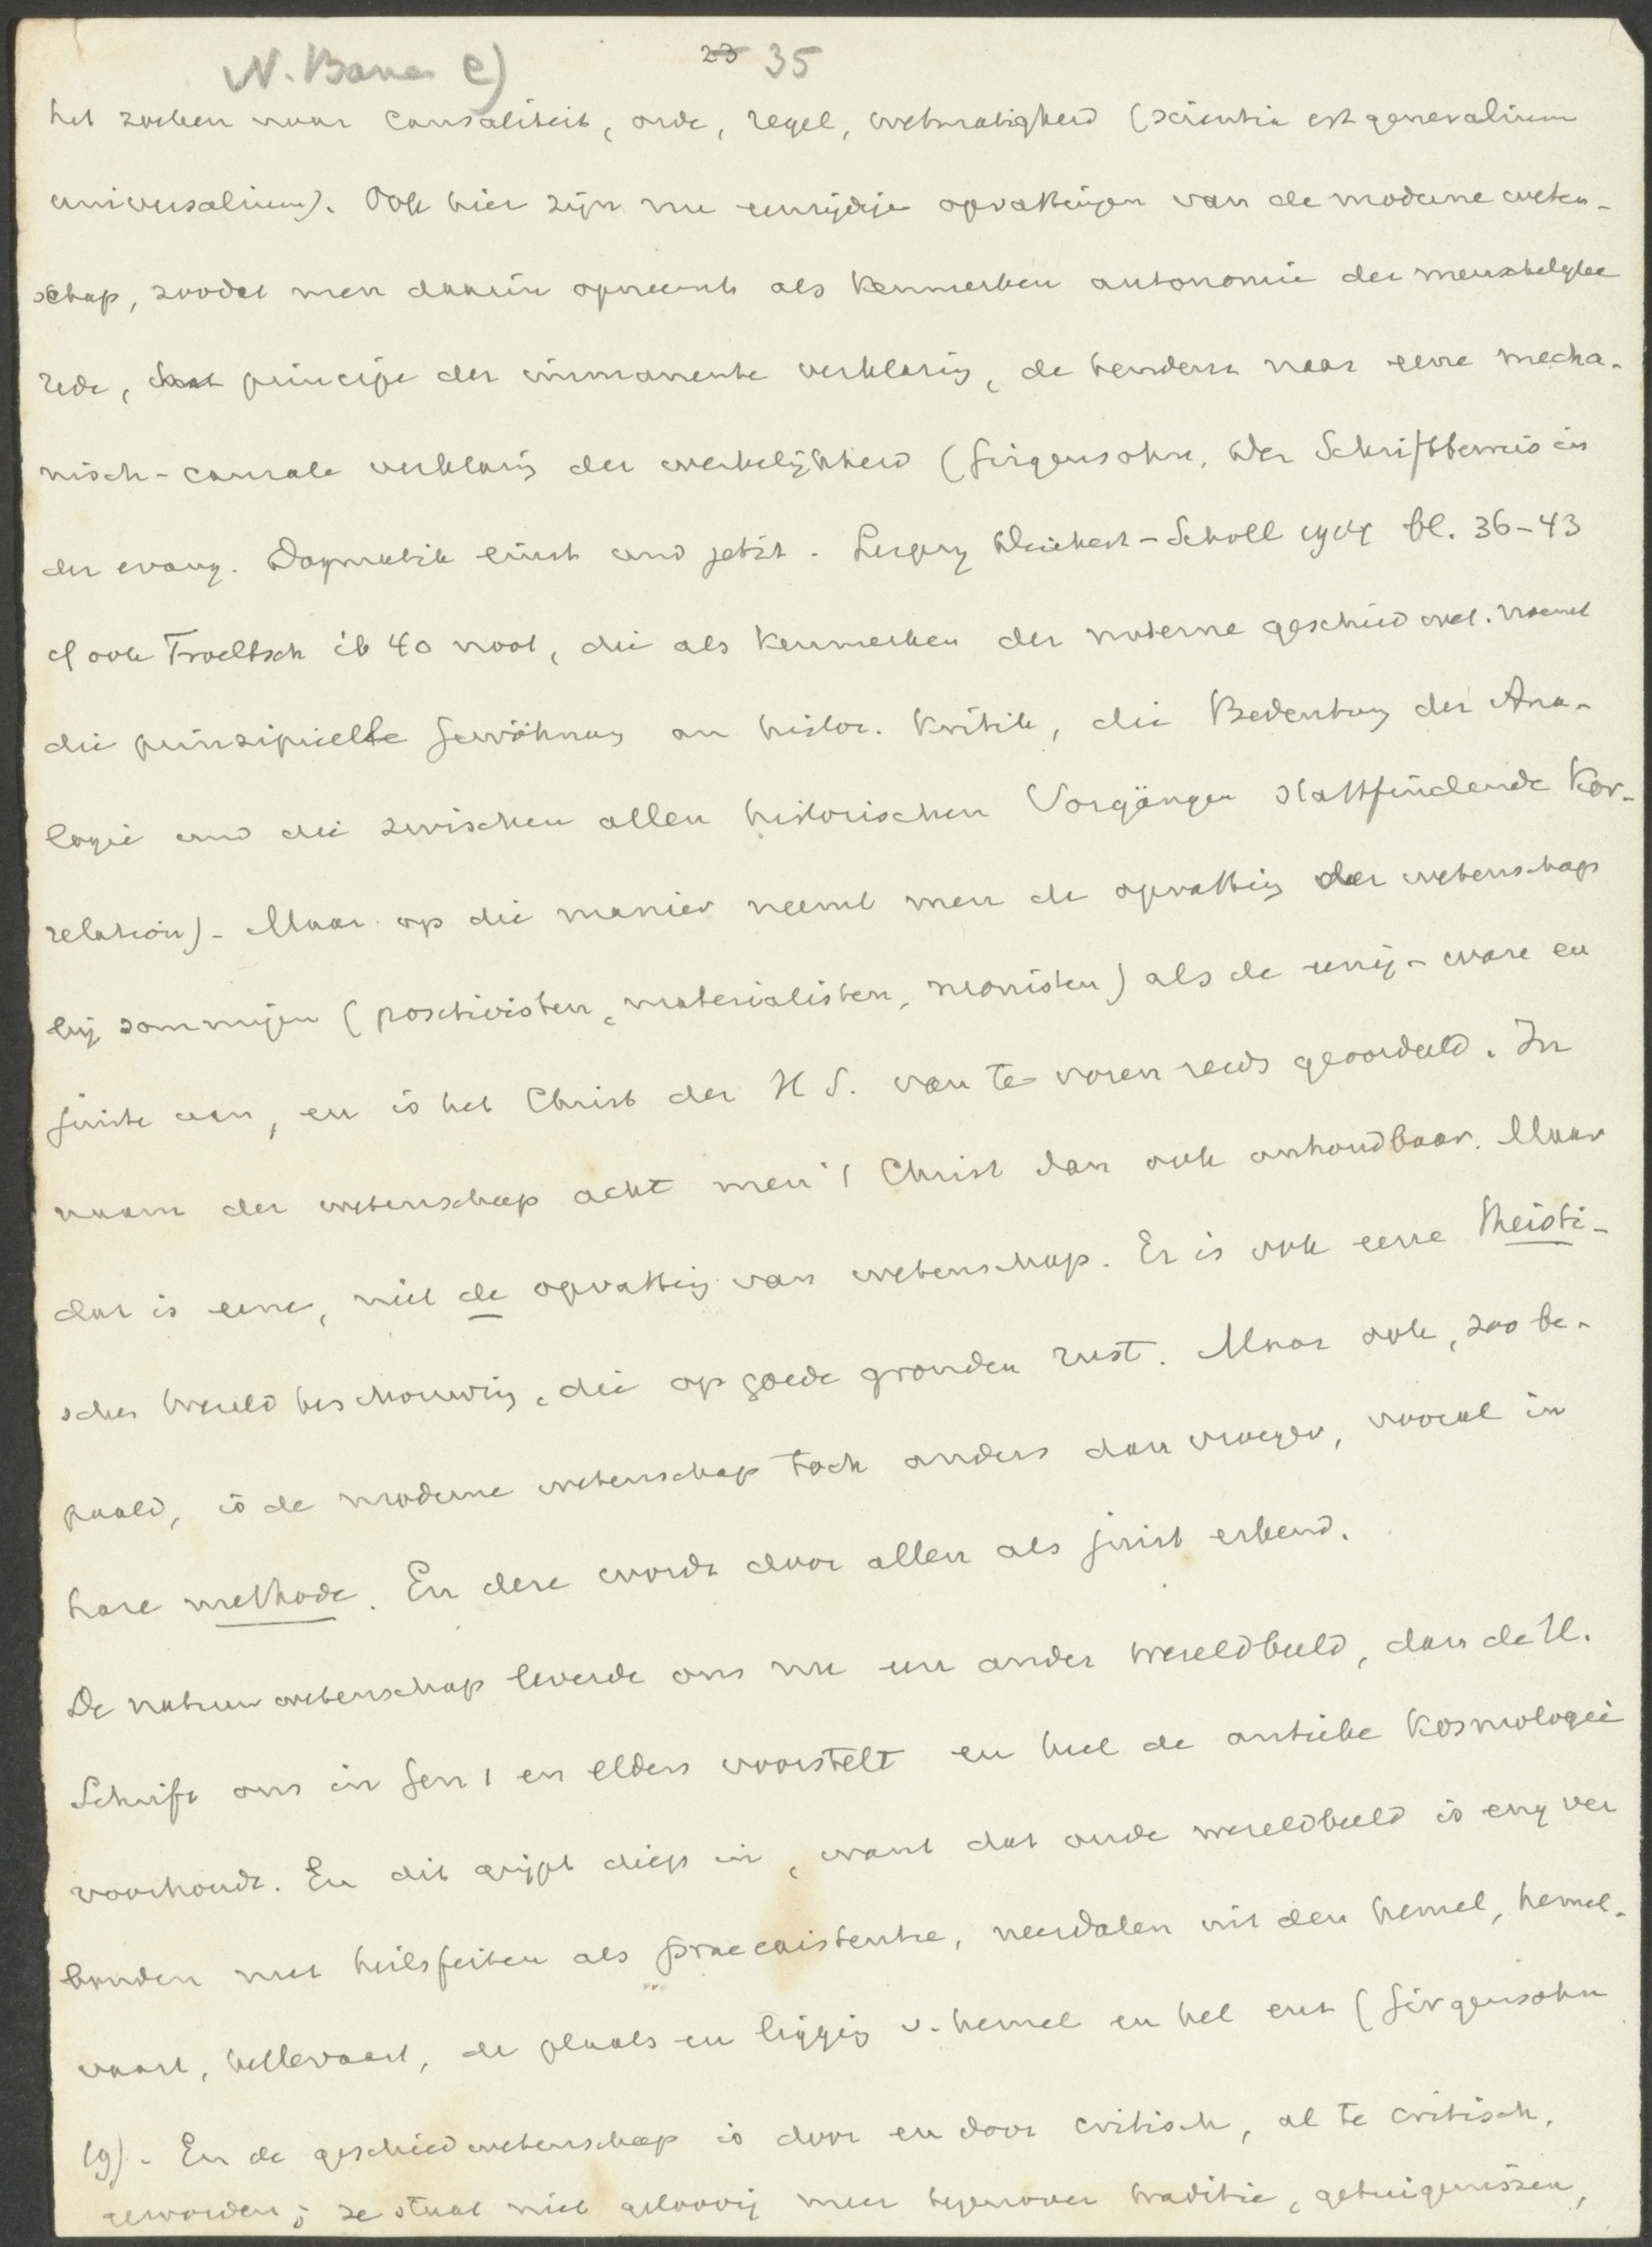 N. Bana e) 23 35
het zoeken naar causaliteit, orde, regel, wetmatigheid (scientia est generalium
universalium). Ook hier zijn nu eenzijdige opvattingen van de moderne weten-
schap, zoodat men daarin opneemt als kenmerken autonomie der menschelyke
rede, principe der immanente verklaring, de tendenz naar eene mecha-
nisch-causale verklaring der werkelijkheid (Girgensohn, Der Schriftbeweis in
der evang. Dogmatik einst und jetzt. Leipzig Deichert-Scholl 1914 bl. 36-43
cf ook Troeltsch ib 40 noot, die als kenmerken der moderne geschied wet. noemt
die prinzipielle Gewöhnung an histor. Kritik, die Bedeutung der Ana-
logie und die zwischen allen historischen Vorgängen stattfindende Kor-
relation). Maar op die manier neemt men de opvatting der wetenschap
bij sommigen (positivisten, materialisten, monisten) als de eenig-ware en
juiste aan, en is het Christ der H S. van te voren reeds geoordeeld. In
naam der wetenschap acht men 't Christ dan ook onhoudbaar. Maar
dat is eene, niet de opvatting van wetenschap. Er is ook eene theisti-
sche wereldbeschouwing, die op goede gronden rust. Maar ook, zoo be-
paald, is de moderne wetenschap toch anders dan vroeger, vooral in
hare methode. En deze wordt door allen als juist erkend.
De natuurwetenschap leverde ons nu een ander wereldbeeld, dan de H.
Schrift ons in Gen 1 en elders voorstelt en heel de antieke kosmologie
voorhoudt. En dit grijpt diep in, want dat oude wereldbeeld is eng ver
bonden met heilsfeiten als praeexistentie, neerdalen uit den hemel, hemel-
vaart, hellevaart, de plaats en ligging v. hemel en hel enz (Girgensohn
19). En de geschiedwetenschap is door en door critisch, al te critisch,
geworden; ze staat niet geloovig meer tegenover traditie, getuigenissen,